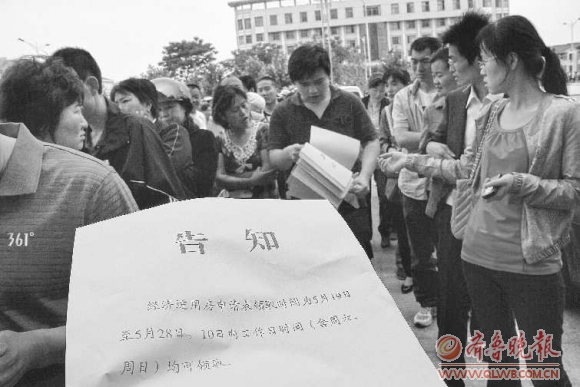 361°
告 知
经济适用房申请表领取时间为5月19日
至5月28日，10日的工作日时间（含周六、
周日）均可领取。
齐鲁晚报
WWW.QLWB.COM.CN